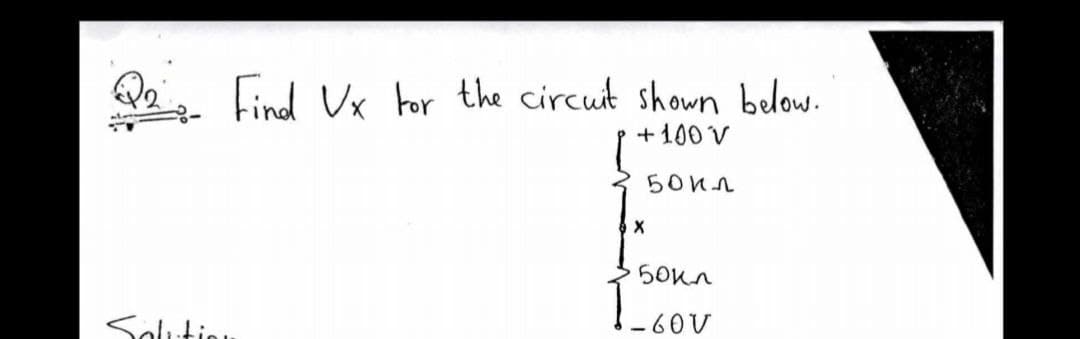 Q2:- Find Vx for the circuit shown below.
+100V
50KΩ
x
50KΩ
-60V
Solution